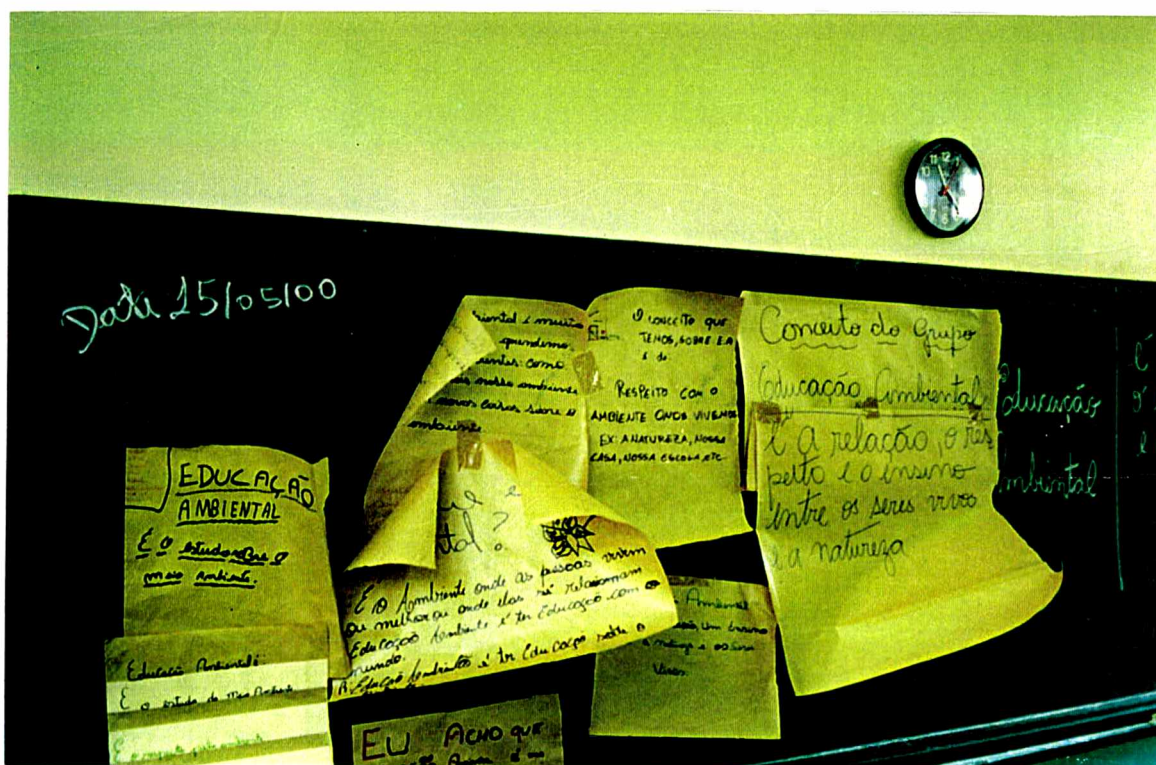 11 12
10
Data 15/05/00
EDUCAÇÃO
AMBIENTAL
É o estudo sobre o
meio ambiente.
Educação Ambiental é
É o estudo do Meio Ambiente
iental é muito
aprendemo
como
nosso ambiente
coisas sobre o
ambiente
ue é
tal?
É o Ambiente onde as pessoas vivem
ou melhor ou onde elas se relacionam
Educação Ambiente é ter Educação com o
mundo.
A Educação Ambiental é ter Educação sobre o
EU ACHO QUE
O CONCEITO QUE
TEMOS, SOBRE E.A
é de
RESPEITO COM O
AMBIENTE ONDE VIVEMOS
EX: A NATUREZA, NOSSA
CASA, NOSSA ESCOLA, ETC.
Ambiental
um Ensino
e os Seres
Vivos.
Conceito do Grupo
Educação Ambiental
é a relação, o res
peito e o ensino
entre os seres vivos
e a natureza
Educação
mbiental